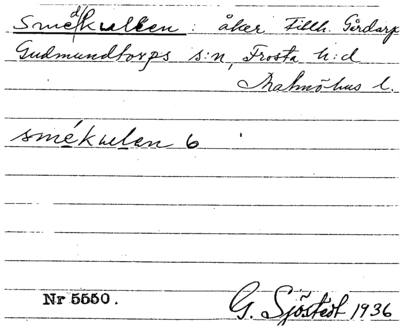 Smedkullen : åker tillh. Gårdarp
Gudmundtorps s:n, Frosta h:d
Malmöhus l.
smékulan 6
Nr 5550.
G. Sjöstedt 1936